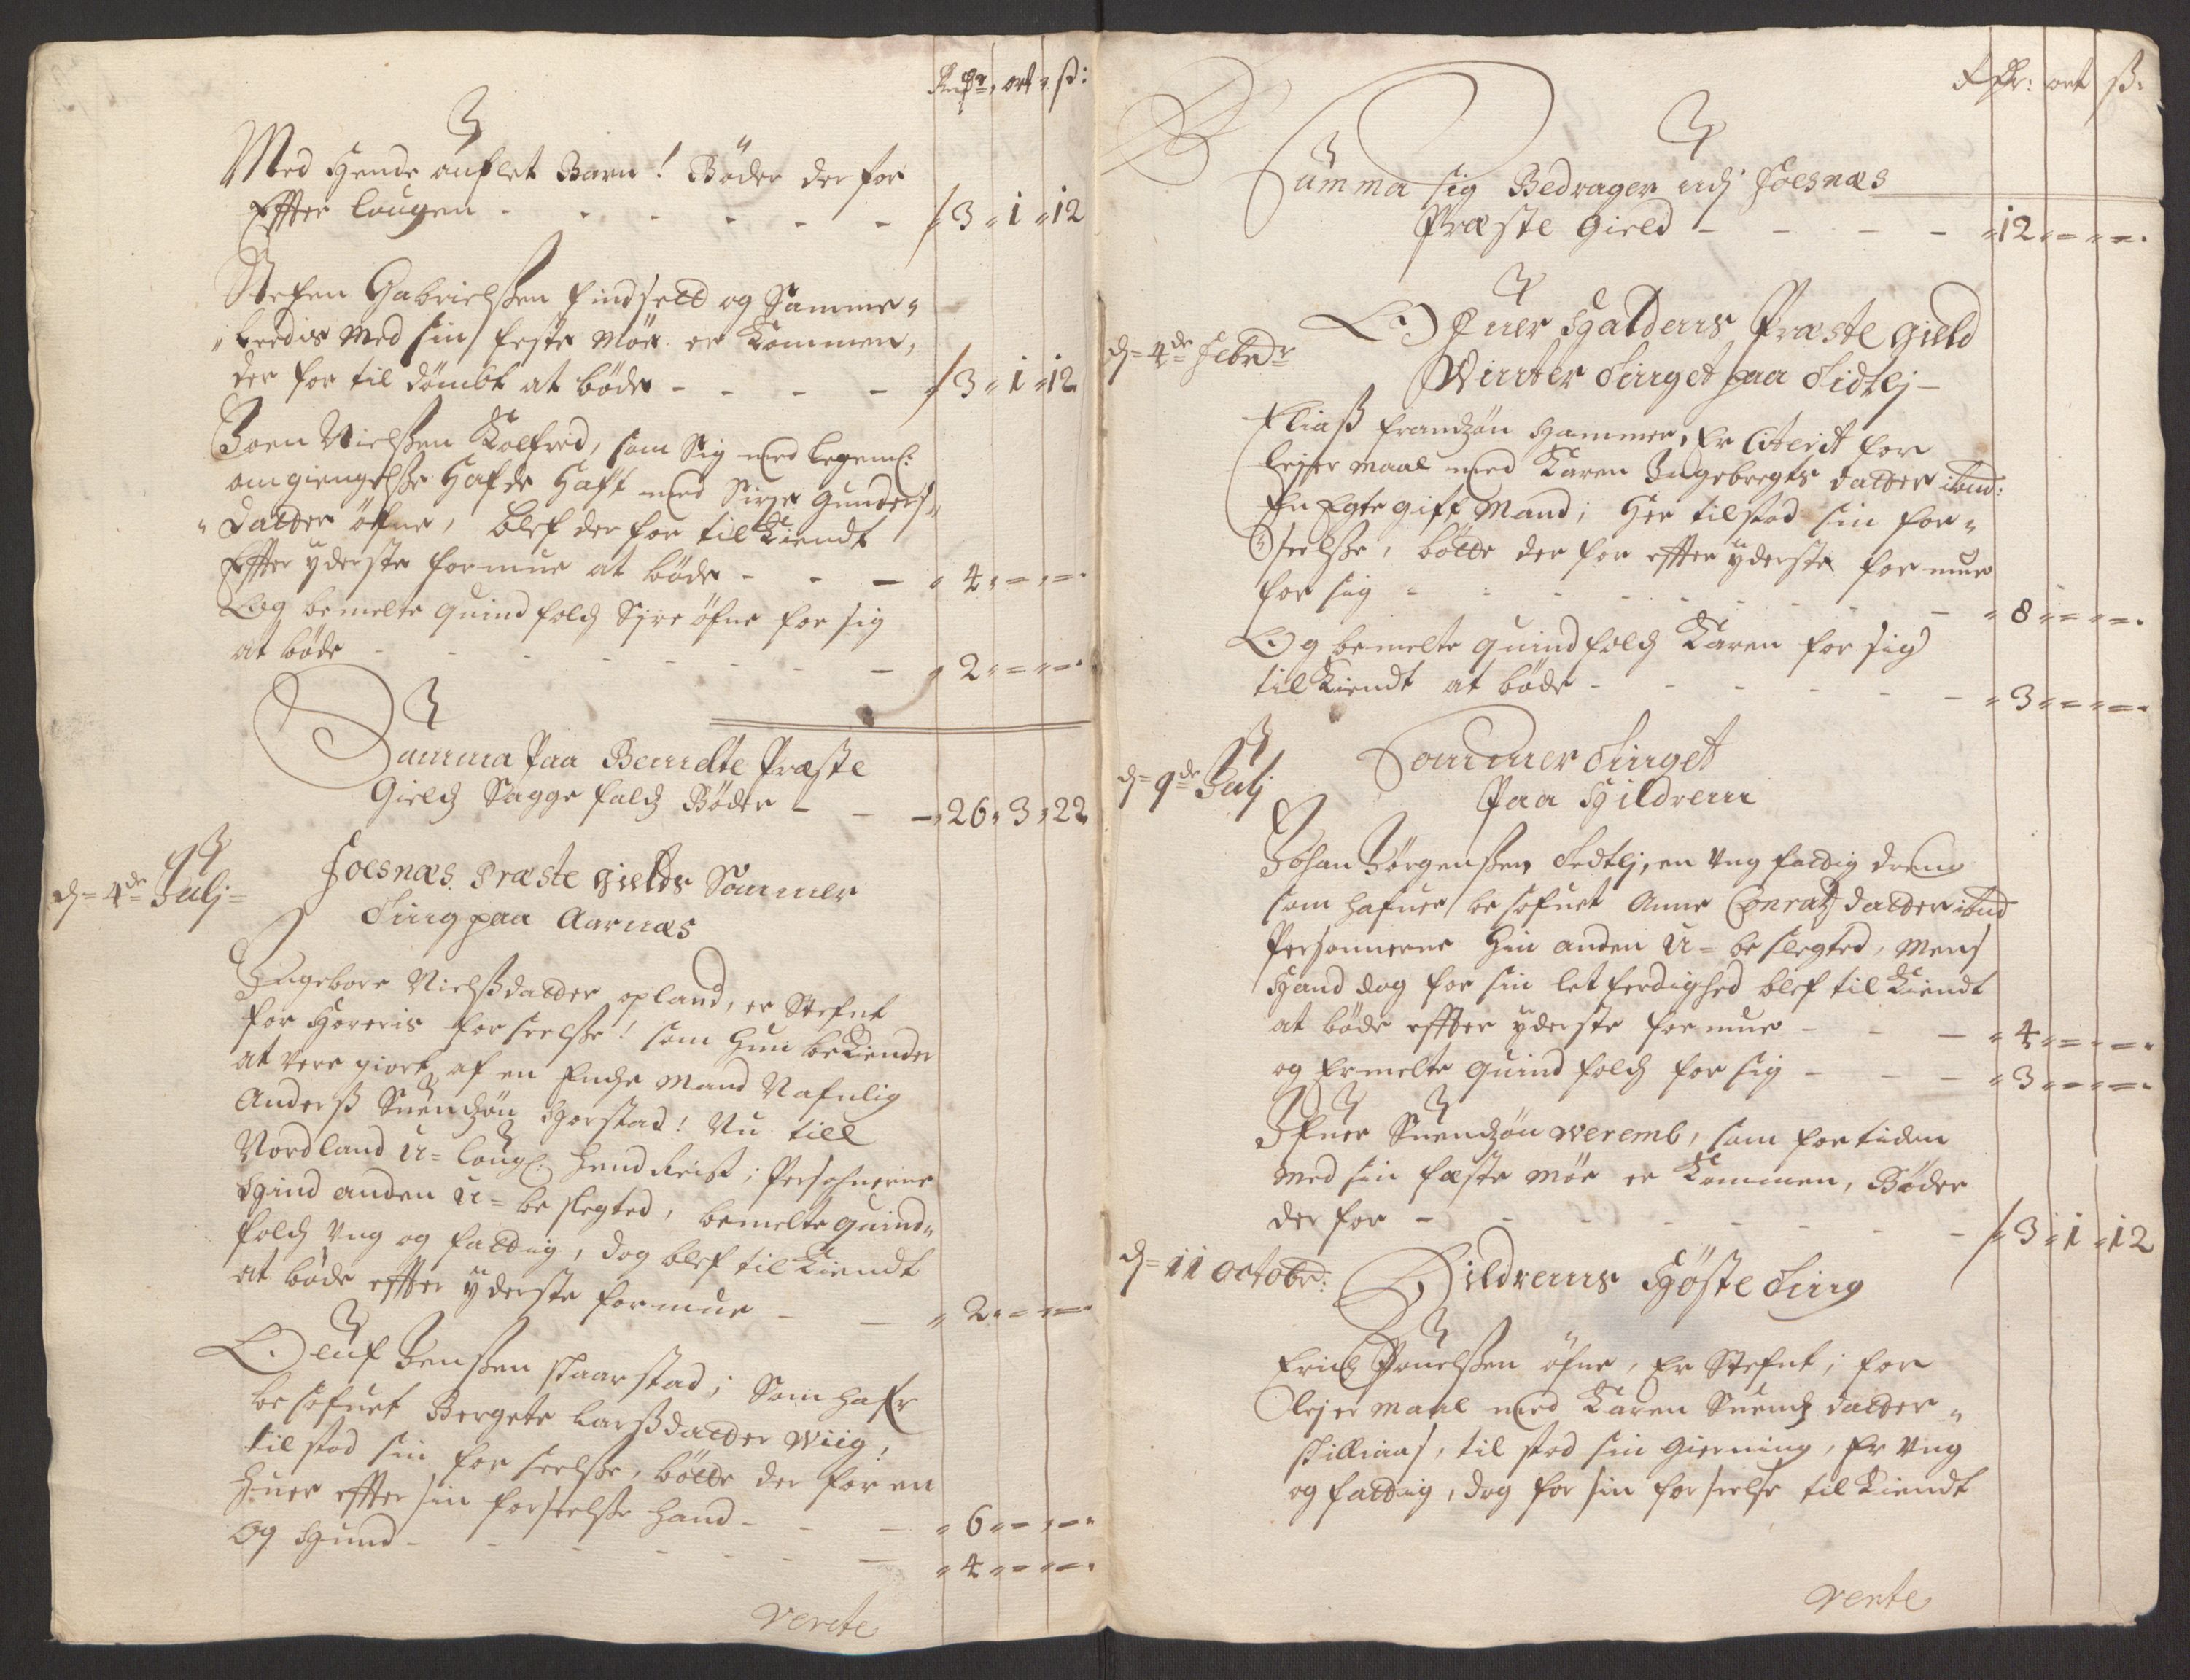 Rixdr, ort, ß:
Med Hende auflet Barn! Böder der for
Effter Lougen - - - - - - 3 " 1 " 12
Steffen Gabrielßen Findsetd og Samme-
"Leedis med sin feste Möe er Kommen,
der for til dömbt at böde - - - - 3 " 1 " 12
Joen Nielßen Kolfred, som Sig med Legeml:
omgiengelße Hafde Haft med Sirje Gunders
"Datter öfne, blef der for til Kiendt
Effter yderste formue at böde - - - " 4 " = " =
Og bemelte quindfolch Syre öfne for sig
at böde - - - - - - - " 2 " = " =
Summa Paa Bemelte Præste
Gield Sagge fald Böder - - - 26 " 3 " 22
d= 4de Julj= Foesnæs Præste gields Sommer
Ting paa Aarnæs
Ingebore Nielßdatter opland, er Stefnt
for Horeris forseelße! som hun bekiender
at vere giort af en Enche Mand Nafnlig
Anderß Suendzön Horstad! Nu till
Nordland u= lougl: hend Reist; Persohnerne
Hind anden u= be slegted, bemelte quind-
folch Ung og fattig, dog blef til Kiendt
at böde effter yderste formue - - " 2 " = " =
Oluf Benßen Skaarstad; Som hafr
besofuet Bergete Larßdatter Wiig,
tilstod sin forseelße, bötte der for en
huer effter sin forseelße hand - - - " 6 " = " =
og Hund - - - - - - - " 4 " = " =
verte
Rdr: ort ß.
Summa sig Bedrager udj Foesnæs
Præste Gield - - - - " 12 " = " =
d= 4de Febrdr Ofuer Haldens Præste gield
Winter Tinget paa Tidtlj -
Eliaß Frandzön Hammer, Er Citerit for
lejermaal med Karen Ingebregts datter ibid:
En Egte gift Mand; Her tilstod sin for-
seelße, bötte der for effter yderste formue
for sig - - - - - - - " 8 " = " =
Og bemelte quindfolch Karen for sig
til Kiendt at böde - - - - - " 3 " = " =
d= 9de Julj Sommer Tinget
Paa Hildrem
Johan Jörgenßen Tedtlj, en Ung fattig dreng
som hafuer besofuet Anne Conratzdatter ibid
Personnerne Hin anden u= beslegted, mens
Hand dog for sin letferdighed blef til Kiendt
at böde effter yderste formue - - - " 4 " = " =
og Ermelte quindfolch for sig - - - " 3 " = " =
Ifuer Suendzön veremb, som for tiden
med sin fæste Möe er Kommen, Böder
der for - - - - - - - 3 " 1 " 12
d= 11 octobr: Hildrems Höste Ting
Erich Pouelßen öfne, Er Stefnt; for
lejermaal med Karen Suendz datter-
skilliaas, til stod sin Gierning, Er Ung
og fattig, dog for sin forseelse til Kiendt
verte